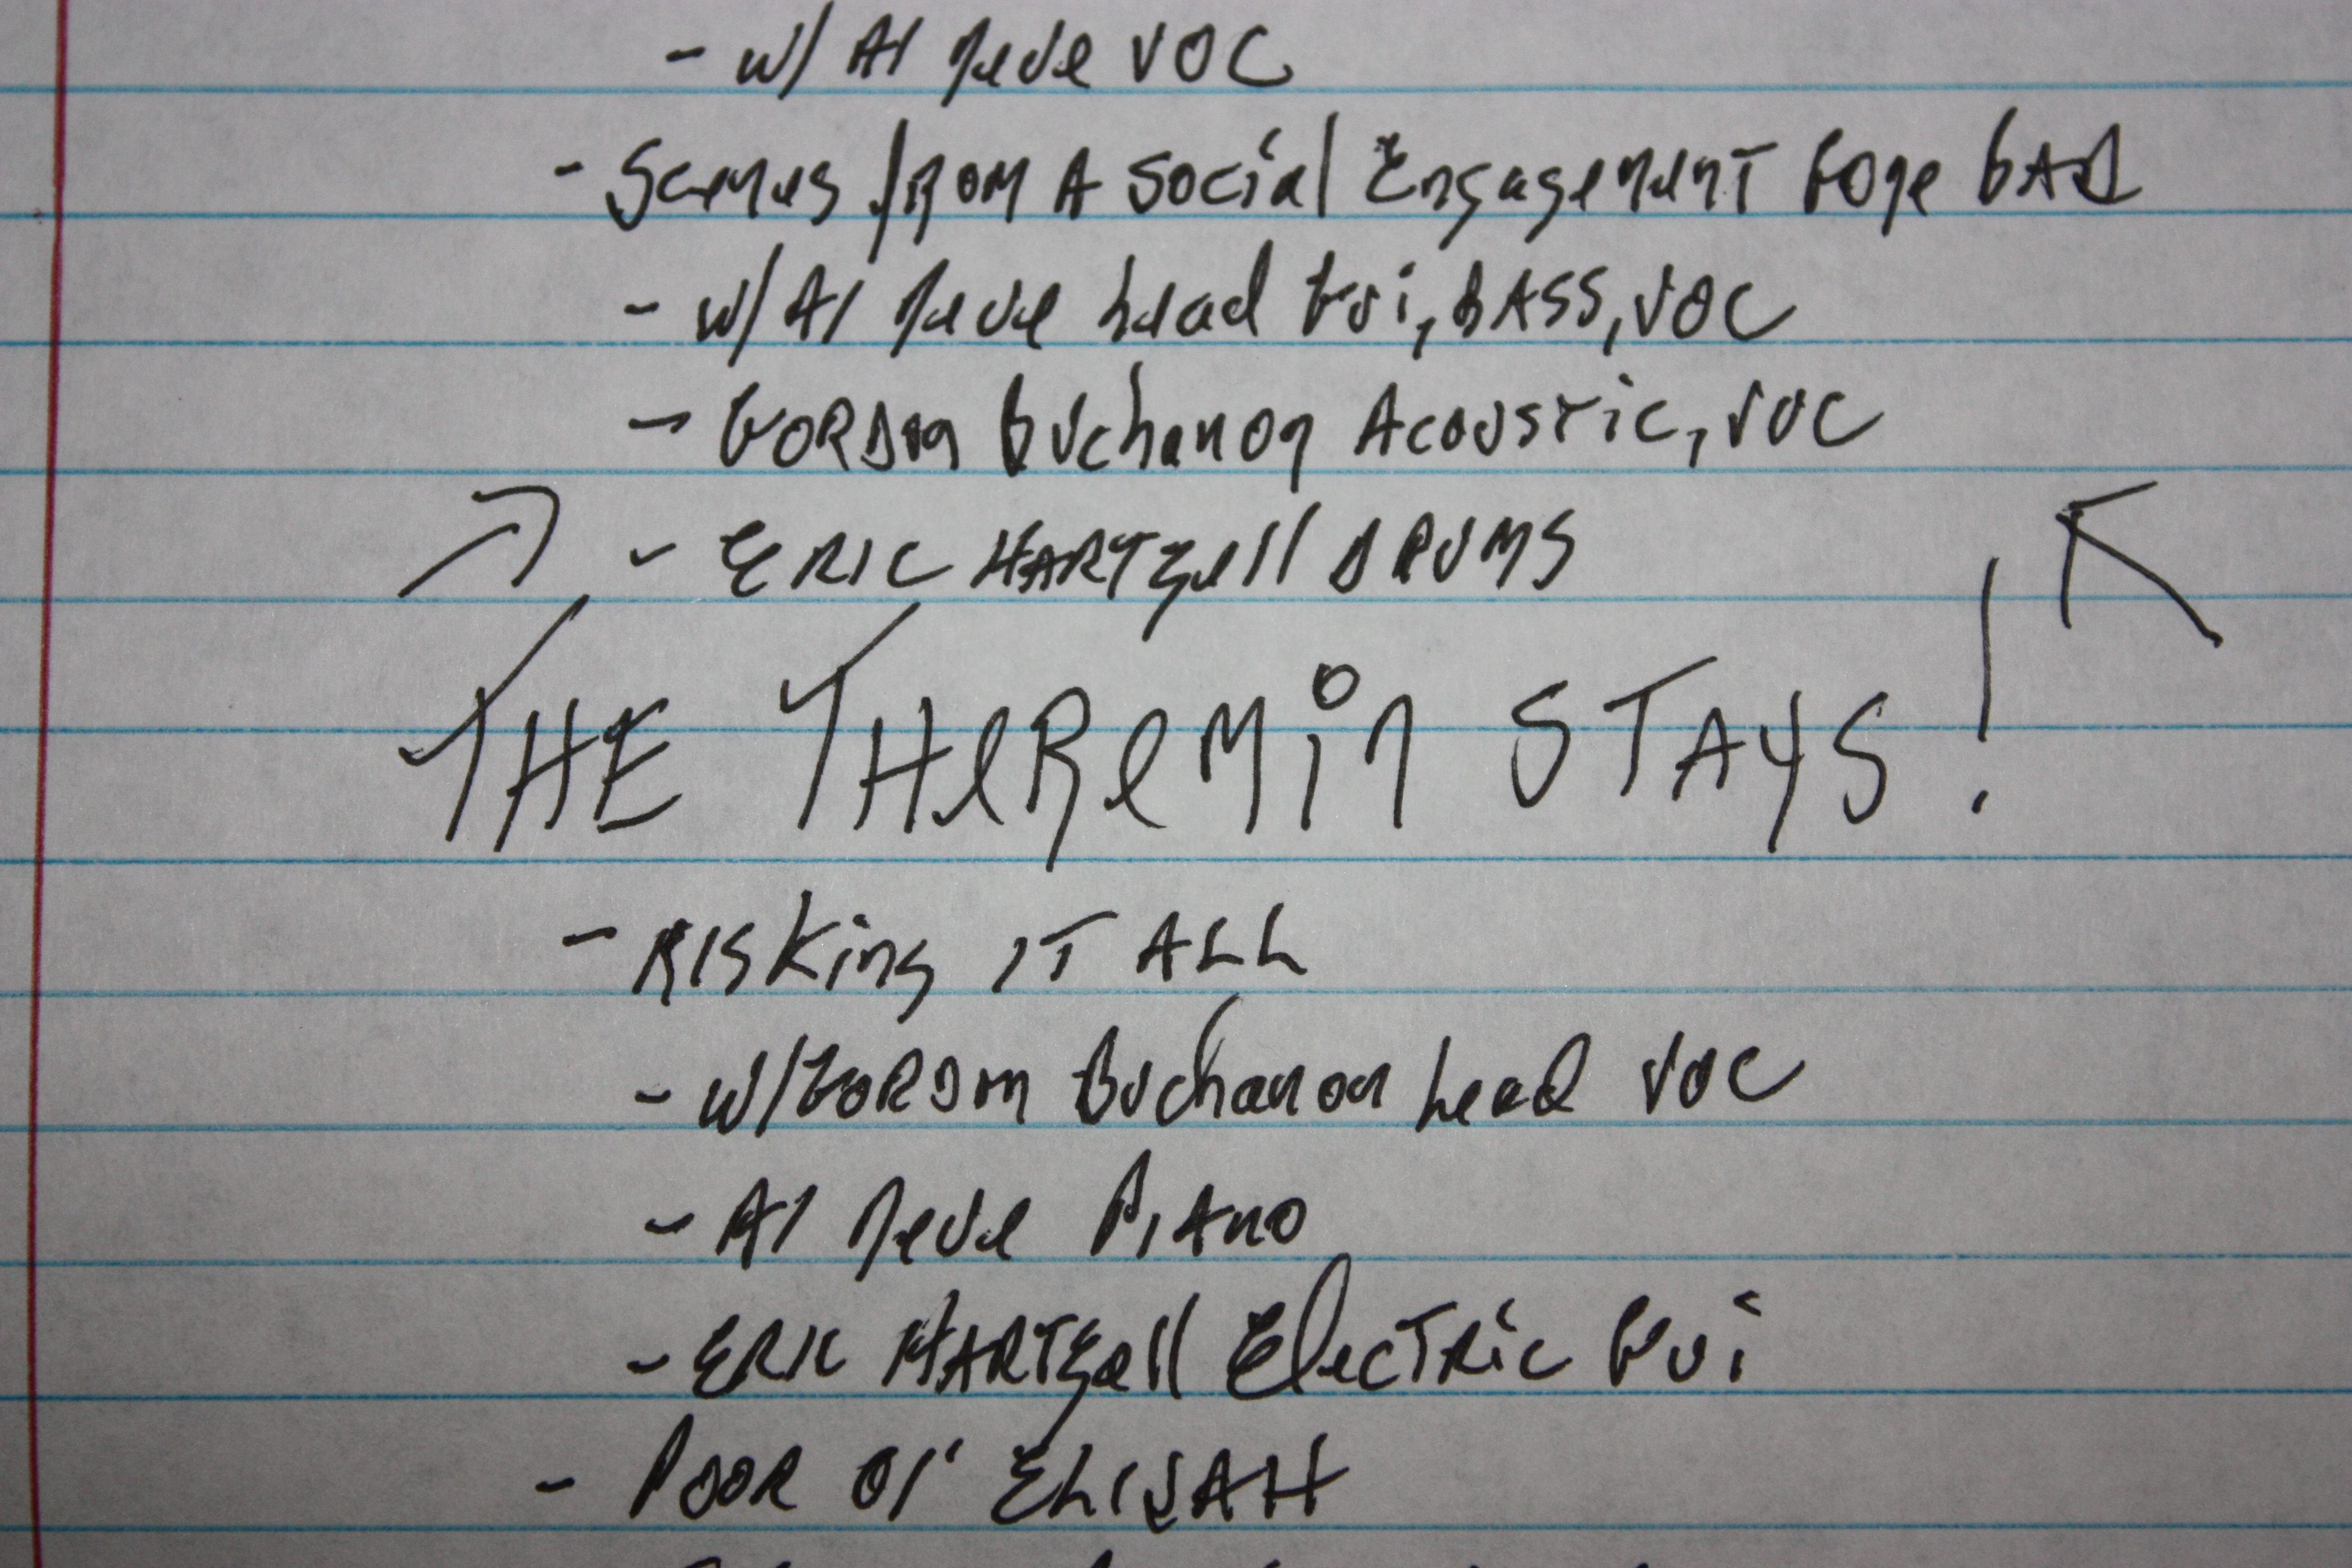 - w/ Al Neve VOC
- Scenes from A Social Engagement Gone BAD
- w/ Al Neve Lead Gui, BASS, VOC
- GORDon Buchanon Acoustic, VOC
- ERIC HARTZell DRUMS
THE THeReMin STAYS!
- RISKing IT ALL
- w/ GORDon Buchanon Lead VOC
- Al Neve PIAno
- ERIC HARTZell ElecTRic Gui
- POOR Ol' ELIJAH